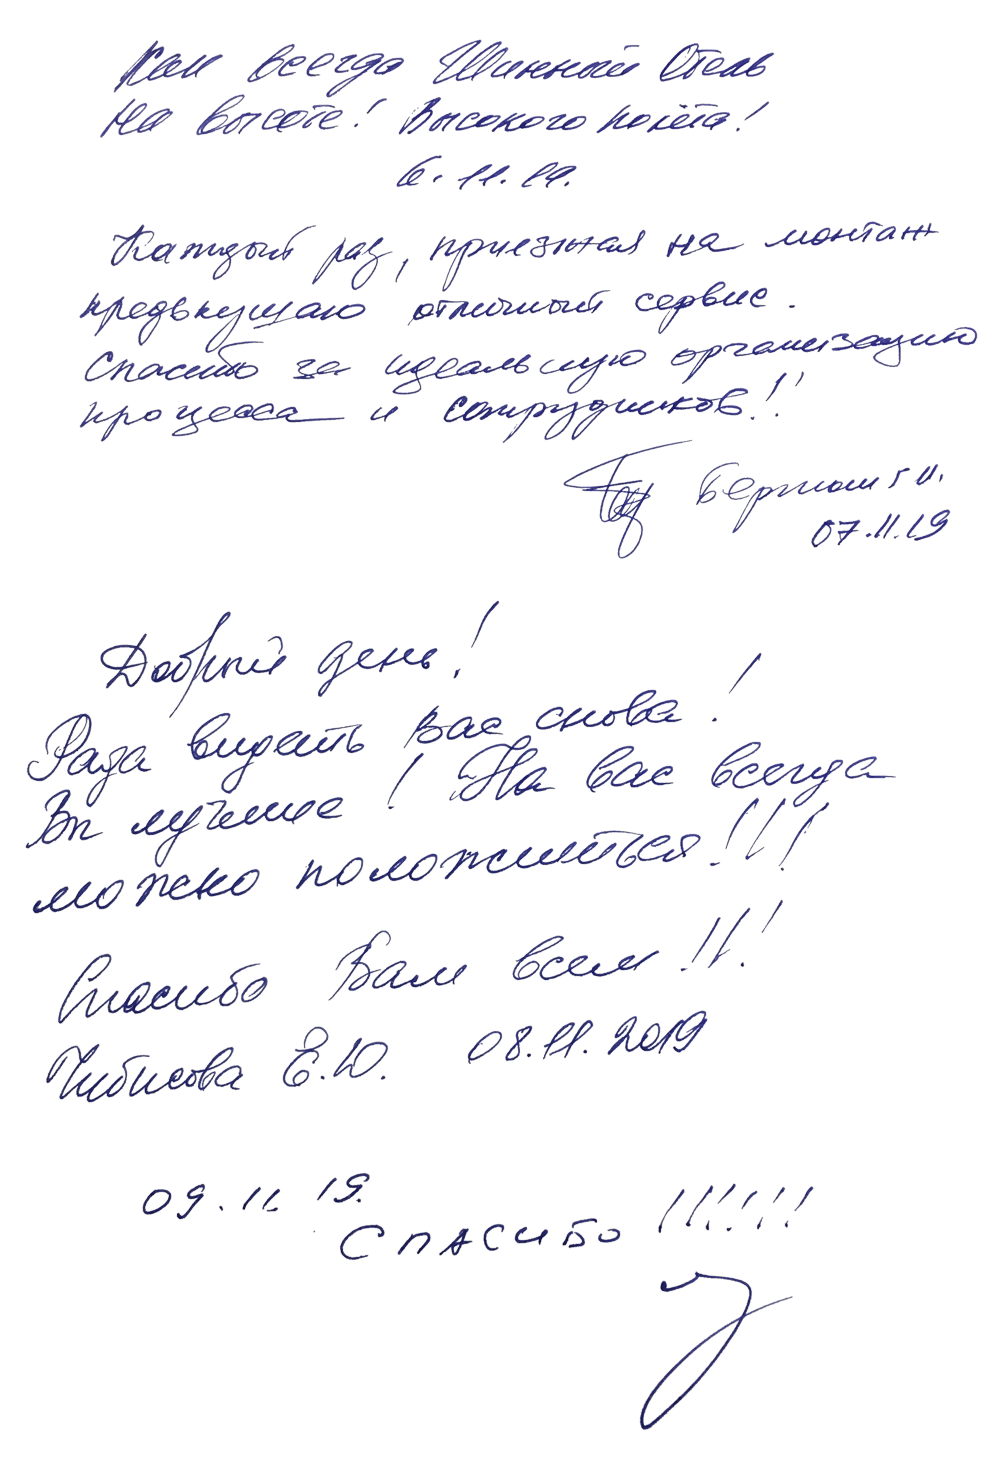 Как всегда Шинный Отель
на высоте! Высокого полёта!
6.11.19.
Каждый раз, приезжая на монтаж
предвкушаю отличный сервис.
Спасибо за идеальную организацию
процесса и сотрудников!!
07.11.19
Добрый день!
Рада видеть Вас снова!
Вы лучшие! На вас всегда
можно положиться!!!
Спасибо Вам всем!!!
Чибисова Е.Ю. 08.11.2019
09.11.19.
Спасибо!!!!!!